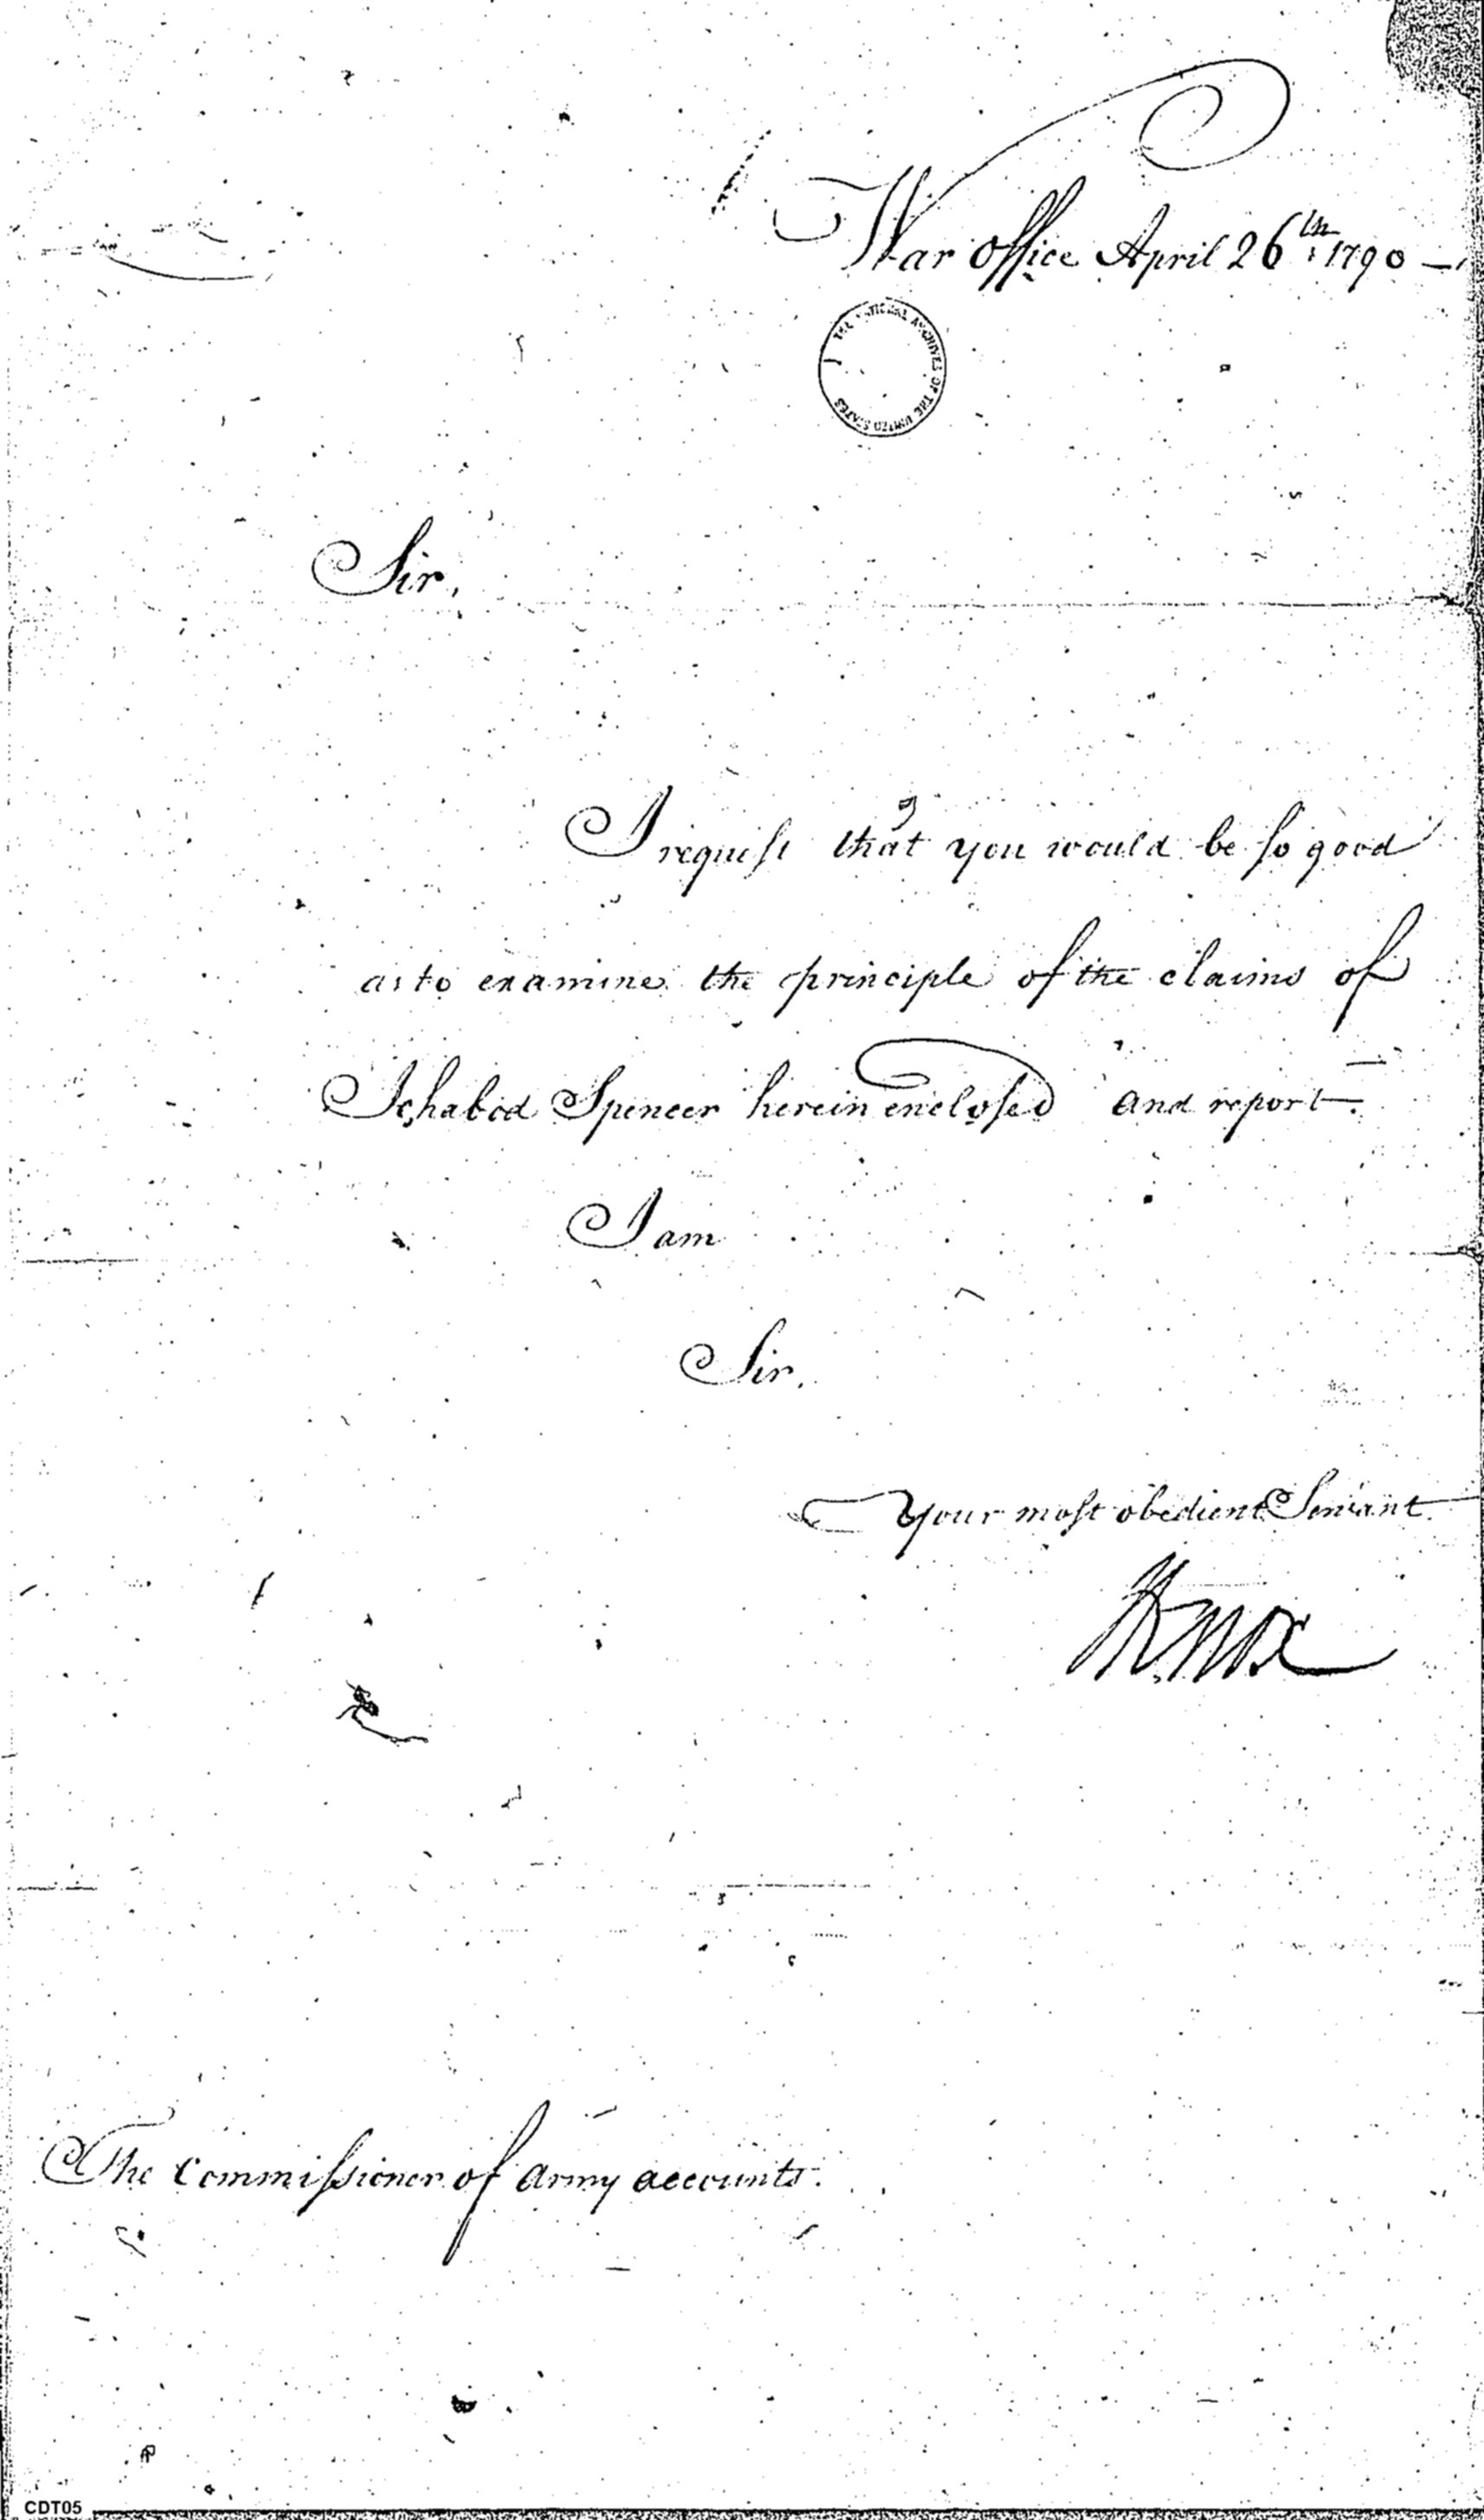 War office April 26th 1790 —
THE NATIONAL ARCHIVES OF THE UNITED STATES
Sir,
I request that you would be so good
as to examine the principle of the claims of
Ichabod Spencer herein enclosed and report.
I am
Sir,
Your most obedient Servant
HKnox
The Commissioner of Army accounts.
CDT05